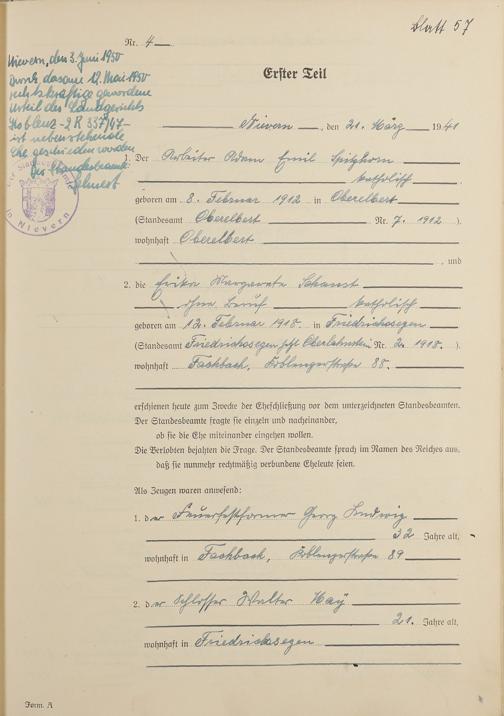 Blatt 57
Nr. 4
Nievern, den 3. Juni 1950
Durch das am 12. Mai 1950
rechtskräftige gewordene
Urteil des Landgerichts
Koblenz - 2 R 337/47 -
ist nebenstehende
Ehe geschieden worden
Der Standesbeamte
in Nievern
Erster Teil
Nievern, den 21. März 1941
1. Der Arbeiter Adam Emil
katholisch
geboren am 8. Februar 1912 in Oberelbert
(Standesamt Oberelbert Nr. 7. 1912 ).
wohnhaft Oberelbert
, und
2. die Erika Margarete
ohne Beruf katholisch
geboren am 12. Februar 1918. in Friedrichssegen
(Standesamt Friedrichssegen jetzt Oberlahnstein Nr. 2. 1918. ).
wohnhaft Fachbach, Koblenzerstraße 88.
erschienen heute zum Zwecke der Eheschließung vor dem unterzeichneten Standesbeamten.
Der Standesbeamte fragte sie einzeln und nacheinander,
ob sie die Ehe miteinander eingehen wollen.
Die Verlobten bejahten die Frage. Der Standesbeamte sprach im Namen des Reiches aus,
daß sie nunmehr rechtmäßig verbundene Eheleute seien.
Als Zeugen waren anwesend:
1. der Feuerfestformer Georg Ludwig
32 Jahre alt,
wohnhaft in Fachbach, Koblenzerstraße 89
2. der Schlosser Walter May
21. Jahre alt,
wohnhaft in Friedrichssegen
Form. A